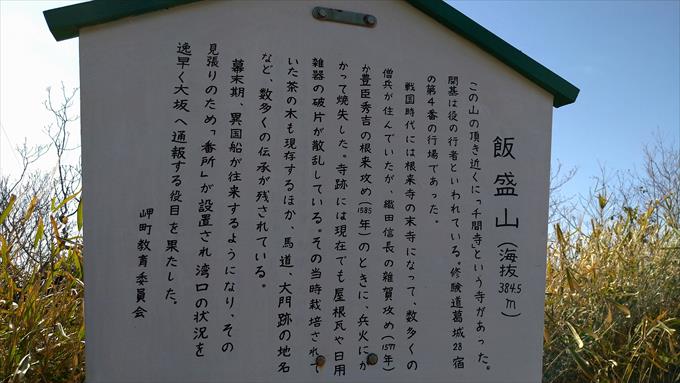 飯盛山(海抜384.5m)
この山の頂き近くに「千間寺」という寺があった。
開基は役の行者といわれている。修験道葛城28宿
の第4番の行場であった。
戦国時代には根来寺の末寺になって、数多くの
僧兵が住んでいたが、織田信長の雑賀攻め(1577年)
か豊臣秀吉の根来攻め(1585年)のときに、兵火にか
かって焼失した。寺跡には現在でも屋根瓦や日用
雑器の破片が散乱している。その当時栽培されて
いた茶の木も現存するほか、馬道、大門跡の地名
など、数多くの伝承が残されている。
幕末期、異国船が往来するようになり、その
見張りのため「番所」が設置され湾口の状況を
逸早く大坂へ通報する役目を果たした。
岬町教育委員会